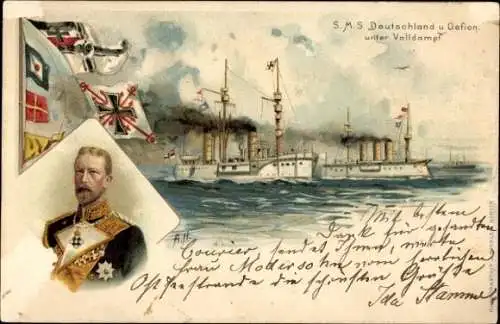 S.M.S. Deutschland u Gefion
unter Volldampf
Mit bestem
Dank für gesandten
Courier sendet Ihnen, werte
Frau Modersohn vom herrlichen
Ostseestrande die schönsten Grüße
Ida Stamme